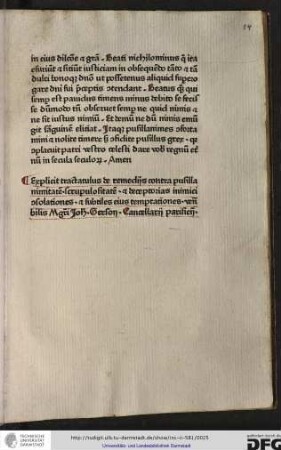 14
in eius dilectõe ⁊ grã. Beati nichilominus q̃ ita
esuriũt ⁊ sitiũt iusticiam in obsequẽdo tãto ⁊ tã
dulci bonoq; dño ut possetenus aliquid
gare dni sui p̃ceptis ↄtendant. Beatus q̃ qui
semp est pauidus timens minus debito se fecis
se dũmodo tñ obseruet semp ne quid nimis ⁊
ne sit iustus nimiũ. Et demũ ne dũ nimis emũ
git sãguinẽ eliciat. Itaq; pusillanimes ↄforta
mini ⁊ nolite timere si deficite pusillus grex. q
ↄplacuit patri vestro celesti dare vob regnũ et̃
nũ in secula seculoꝝ. Amen
Explicit tractatulus de remedijs contra pusilla
nimitatẽ. scrupulositatẽ. ⁊ deceptorias inimici
ↄsolationes. ⁊ subtiles eius temptationes. vẽn
bilis Mgr̃i Joh. Gerson. Cancellarij parisieñ.
TECHNISCHE
UNIVERSITÄT
DARMSTADT
http://tudigit.ulb.tu-darmstadt.de/show/inc-ii-581/0025
Universitäts- und Landesbibliothek Darmstadt
gefördert durch die
DFG